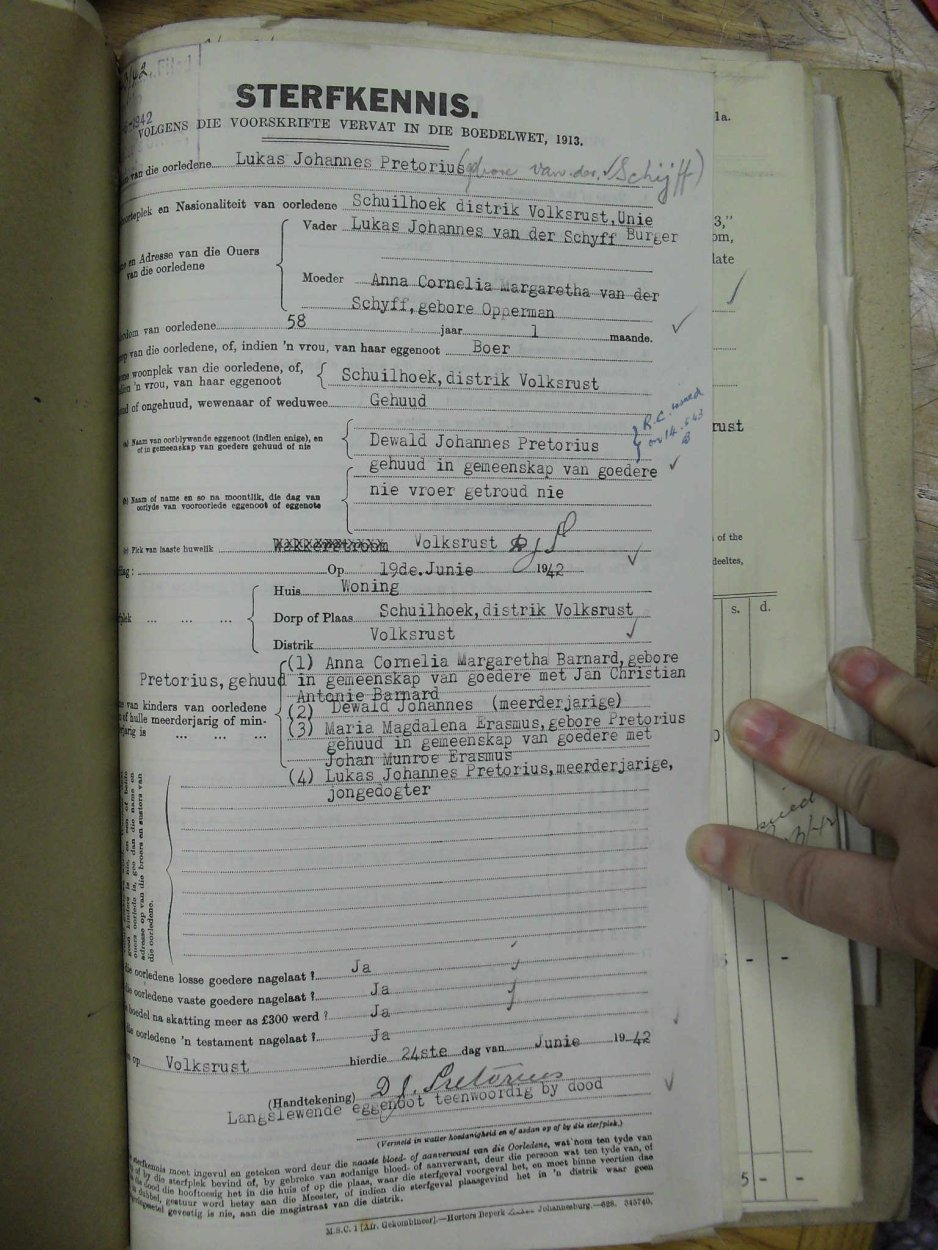 3/42.
1942
STERFKENNIS.
VOLGENS DIE VOORSKRIFTE VERVAT IN DIE BOEDELWET, 1913.
van die oorledene Lukas Johannes Pretorius (gebore van der Schijff)
Nasionaliteit van oorledene Schuilhoek distrik Volksrust, Unie
Vader Lukas Johannes van der Schyff Burger
en Adresse van die Ouers
van die oorledene
Moeder Anna Cornelia Margaretha van der
Schyff, gebore Opperman
van oorledene 58 jaar 1 maande.
van die oorledene, of, indien 'n vrou, van haar eggenoot Boer
woonplek van die oorledene, of,
'n vrou, van haar eggenoot Schuilhoek, distrik Volksrust
of ongehuud, wewenaar of weduwee Gehuud
(a) Naam van oorblywende eggenoot (indien enige), en
of in gemeenskap van goedere gehuud of nie
Dewald Johannes Pretorius
R.C. issued
gehuud in gemeenskap van goedere
nie vroer getroud nie
(b) Naam of name en so na moontlik, die dag van
oorlyde van vooroorlede eggenoot of eggenote
Plek van laaste huwelik Wakkerstroom Volksrust
Op 19de. Junie 1942
Huis Woning
Dorp of Plaas Schuilhoek, distrik Volksrust
Distrik Volksrust
(1) Anna Cornelia Margaretha Barnard, gebore
Pretorius, gehuud in gemeenskap van goedere met Jan Christian
Antonie Barnard
van kinders van oorledene
(2) Dewald Johannes (meerderjarige)
of hulle meerderjarig of min-
(3) Maria Magdalena Erasmus, gebore Pretorius
gehuud in gemeenskap van goedere met
Johan Munroe Erasmus
(4) Lukas Johannes Pretorius, meerderjarige,
jongedogter
adresse op van die broers en susters van
die oorledene.
die oorledene losse goedere nagelaat? Ja
die oorledene vaste goedere nagelaat? Ja
boedel na skatting meer as £300 werd? Ja
die oorledene 'n testament nagelaat? Ja
op Volksrust hierdie 24ste dag van Junie 1942
(Handtekening) D J. Pretorius
Langslewende eggenoot teenwoordig by dood
(Vermeld in watter hoedanigheid en of asdan op of by die sterfplek.)
sterfkennis moet ingevul en geteken word deur die naaste bloed- of aanverwant van die Oorledene, wat nom ten tyde van
of by die sterfplek bevind of, by gebreke van sodanige bloed- of aanverwant, deur die persoon wat ten tyde van, of
die dood die hooftoesig het in die huis of op die plaas, waar die sterfgeval voorgeval het, en moet binne veertien dae
gestuur word hetsy aan die Meester, of indien die sterfgeval plaasgevind het in 'n distrik waar geen
gevestig is nie, aan die magistraat van die distrik.
M.S.C. 1 [Afr. Gekombineer].—Hortors Beperk Johannesburg.—628. 345740.
1a.
3,"
om,
late
rust
of the
deeltes,
s. d.
5 - -
5 - -